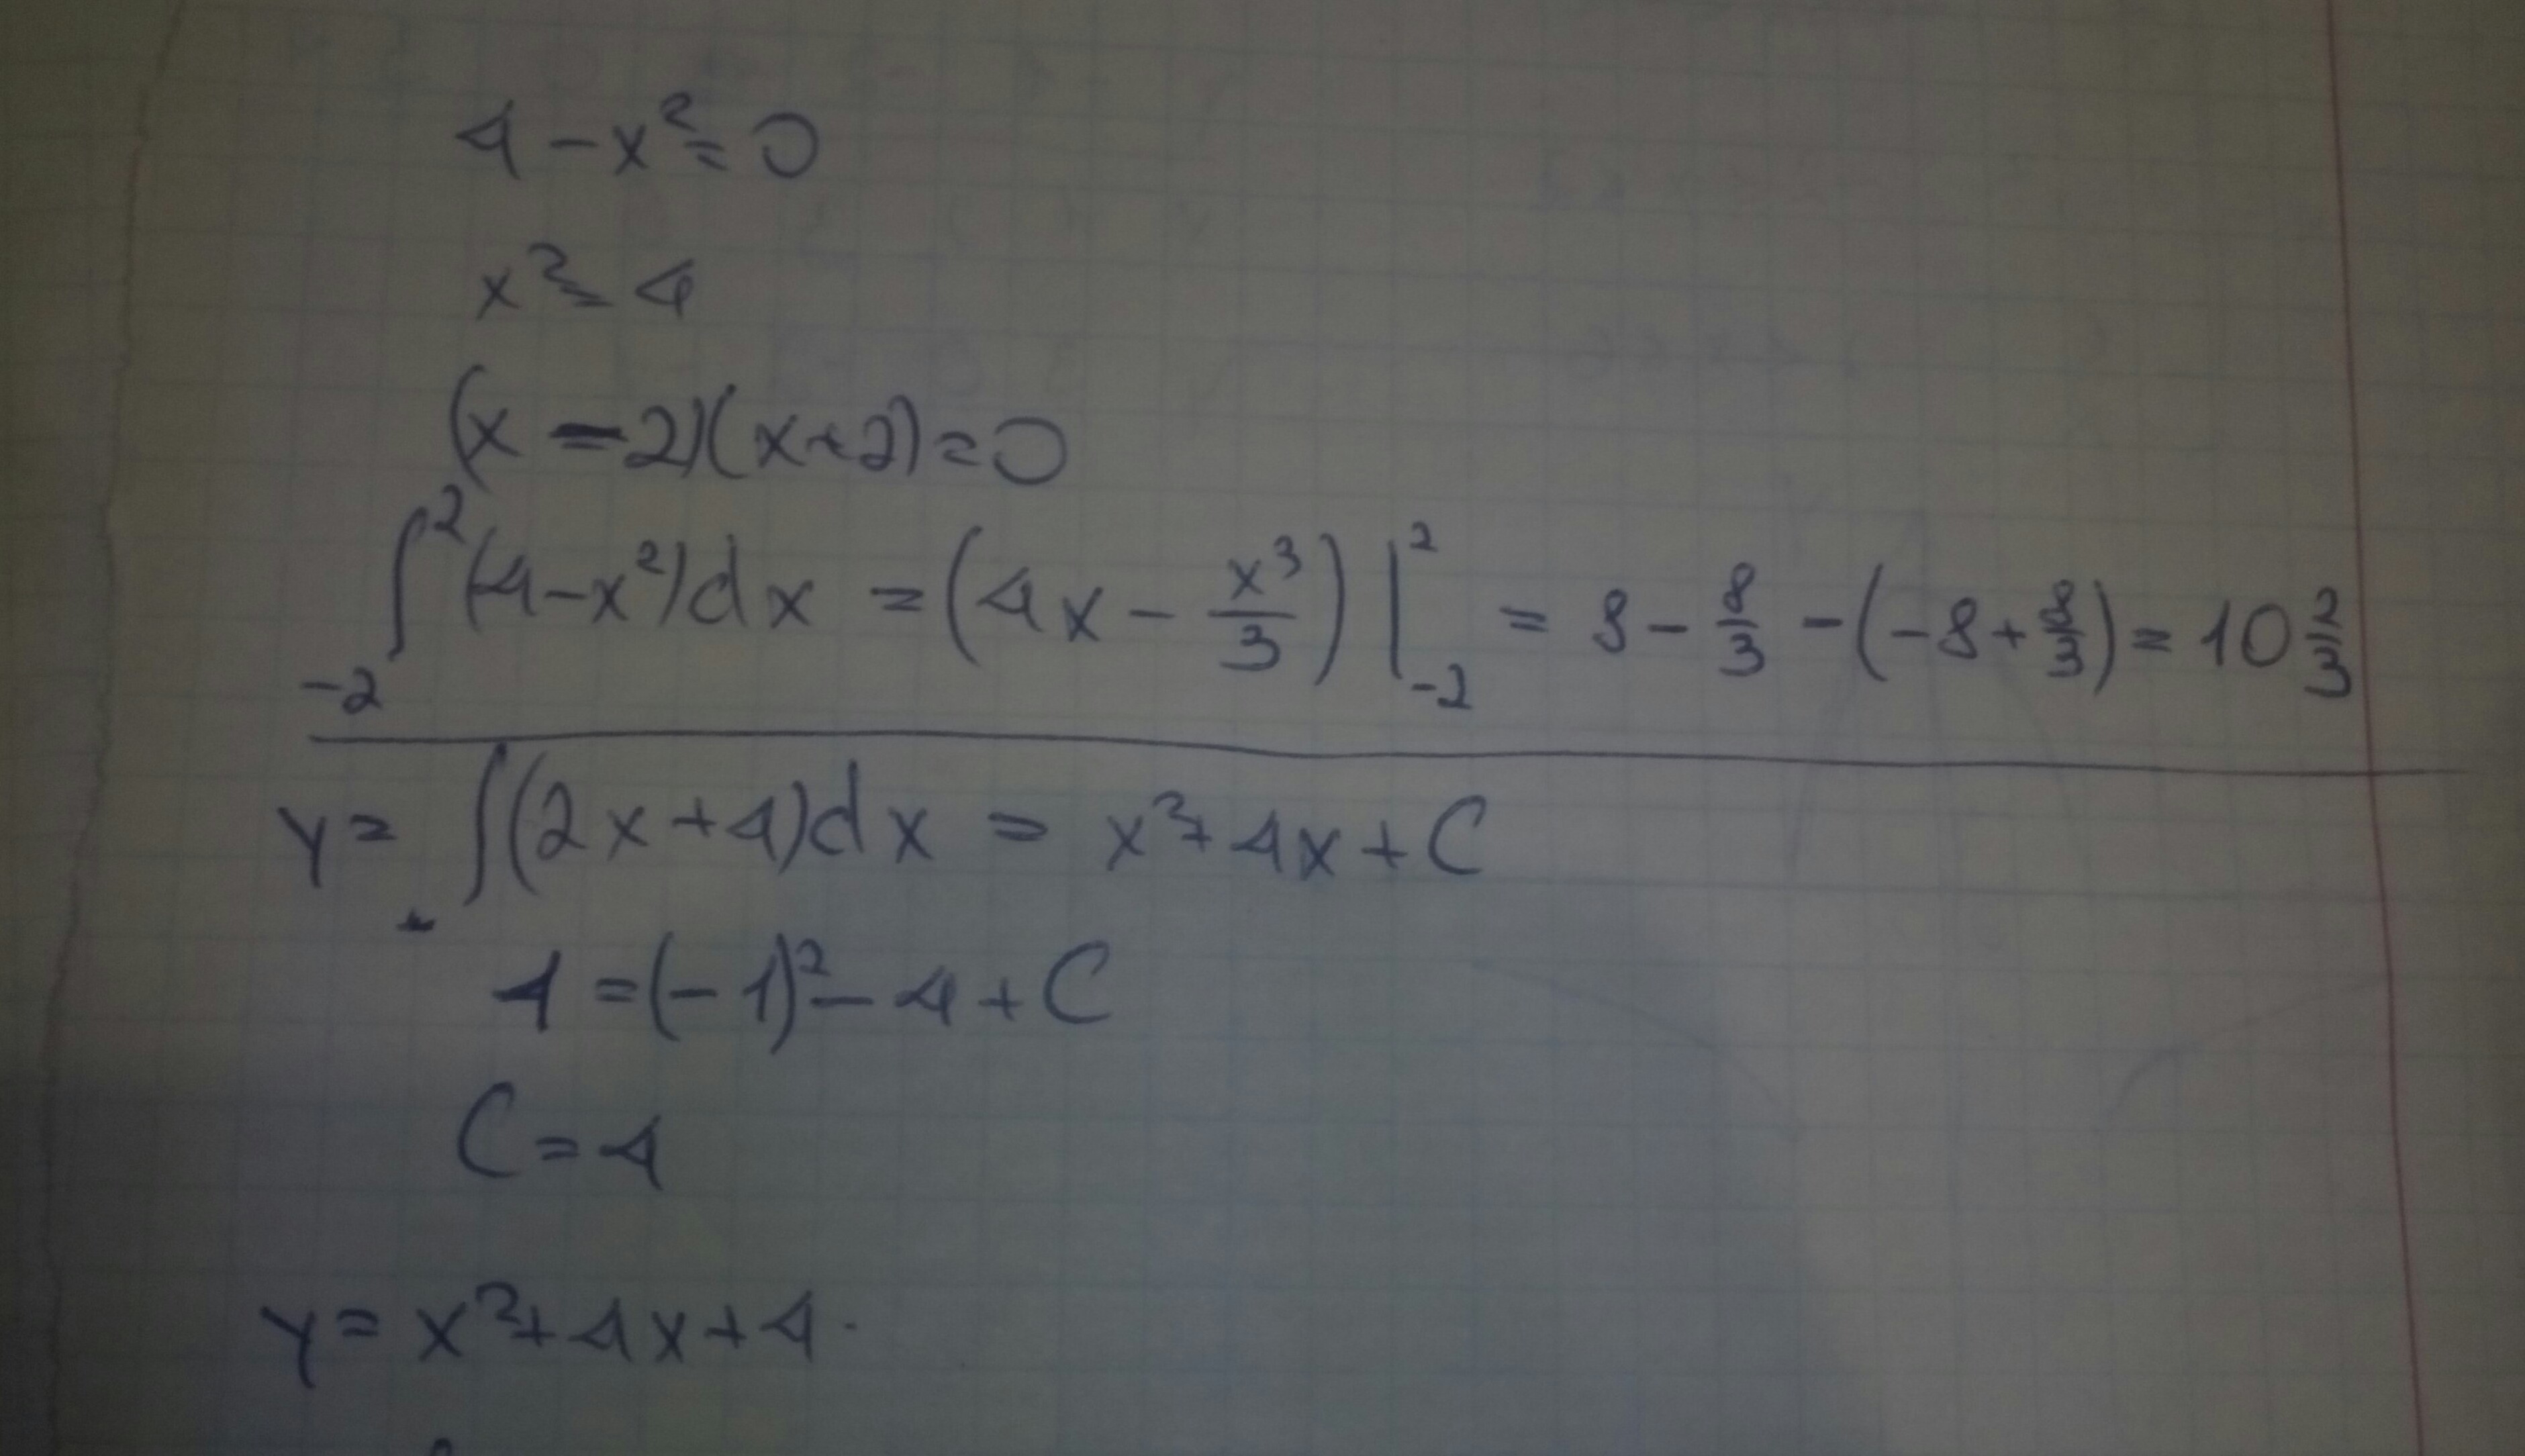 4 - x² = 0
x² = 4
(x - 2)(x + 2) = 0
∫₋₂² (4 - x²)dx = (4x - x³/3) |₋₂² = 8 - 8/3 - (-8 + 8/3) = 10 2/3
y = ∫(2x + 4)dx = x² + 4x + C
1 = (-1)² - 4 + C
C = 4
y = x² + 4x + 4.